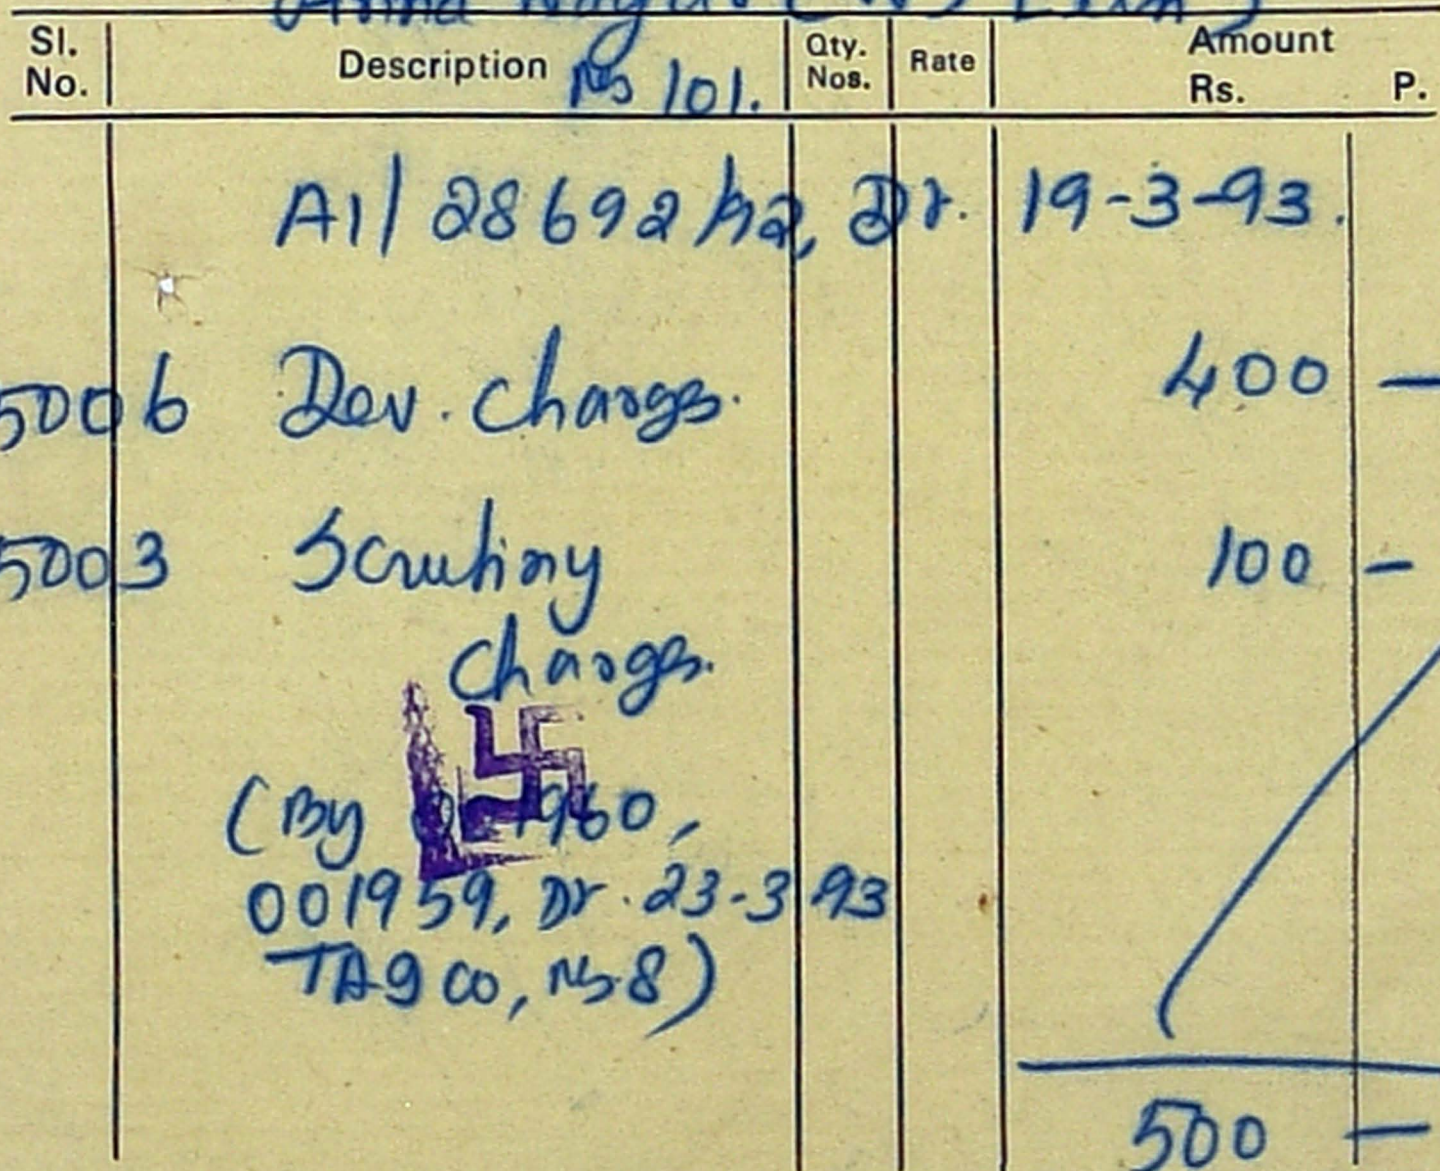 Anna Nagar
Sl. No. Description Qty. Nos. Rate Amount Rs. P.
Ms 101.
A1/28692/92, Dt. 19-3-93.
5006 Dev. Charges. 400 —
5003 Scrutiny 100 —
Charges.
(By 1960,
001959, Dt. 23-3-93
Ms-8)
500 —